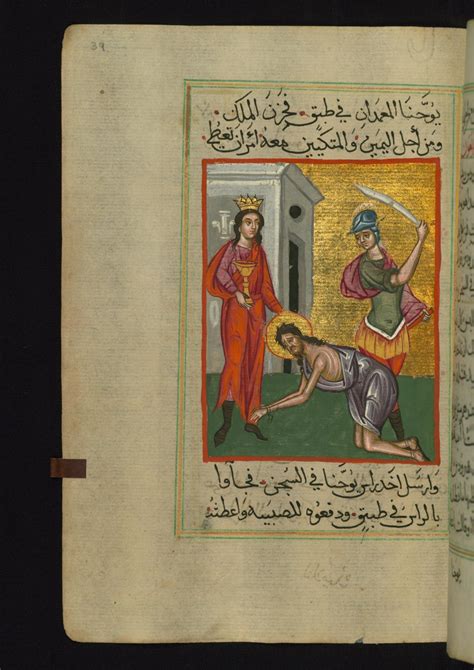 39
يوحنا المعمدان في طبق فحزن الملك
ومن اجل اليمين والمتكيين معه امران تعطي
وارسل اخد راس يوحنا في السجن فجاوا
بالراس في طبق ودفعوه للصبية واعطته